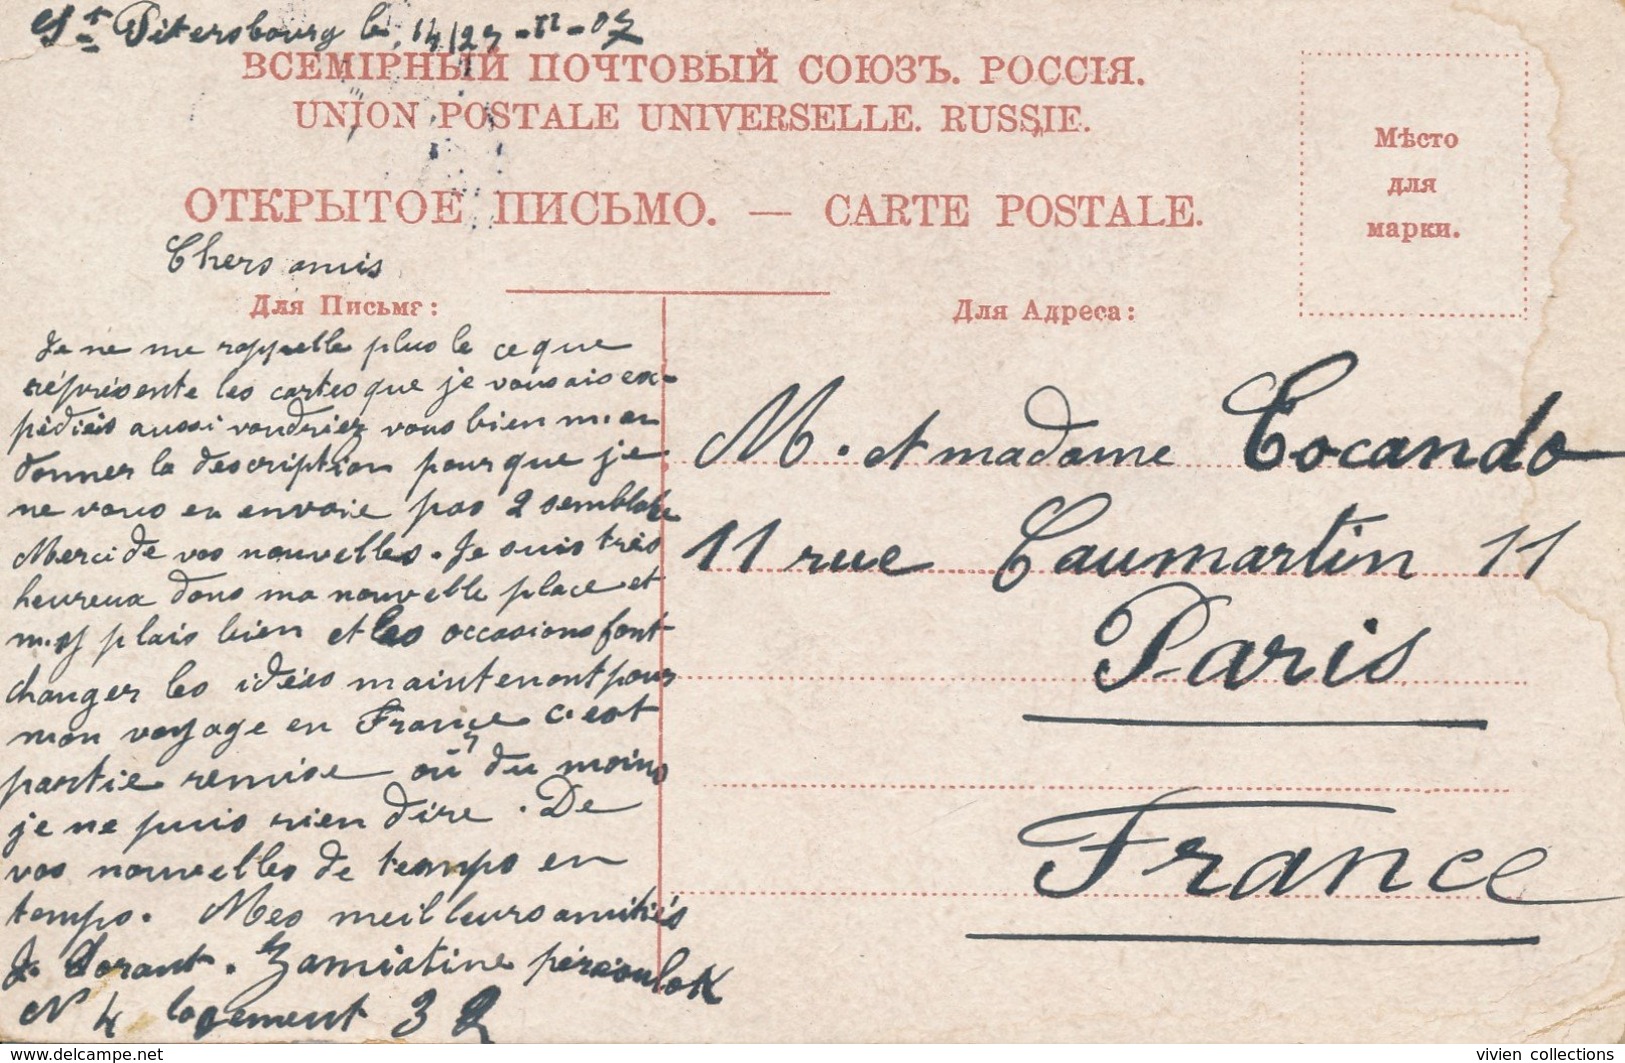 St Pétersbourg le 14/27-II-07
ВСЕМІРНЫЙ ПОЧТОВЫЙ СОЮЗЪ. РОССІЯ.
UNION POSTALE UNIVERSELLE. RUSSIE.
Мѣсто
для
марки.
ОТКРЫТОЕ ПИСЬМО. — CARTE POSTALE.
Chers amis
Для Письма:
Je ne me rappelle plus le ce que
réprésente les cartes que je vous ais ex-
pédiées aussi voudriez vous bien m'en
donner la description pour que je
ne vous en envoie pas 2 semblable
Merci de vos nouvelles. Je suis très
heureux dans ma nouvelle place et
m'y plais bien et les occasions font
changer les idées maintenant pour
mon voyage en France c'est
partie remise où du moins
je ne puis rien dire. De
vos nouvelles de temps en
temps. Mes meilleurs amitiés
J. Dorant. Zamiatine péréoulok
N 4 logement 32
Для Адреса:
M. et madame Cocando
11 rue Caumartin 11
Paris
France
vivien collections